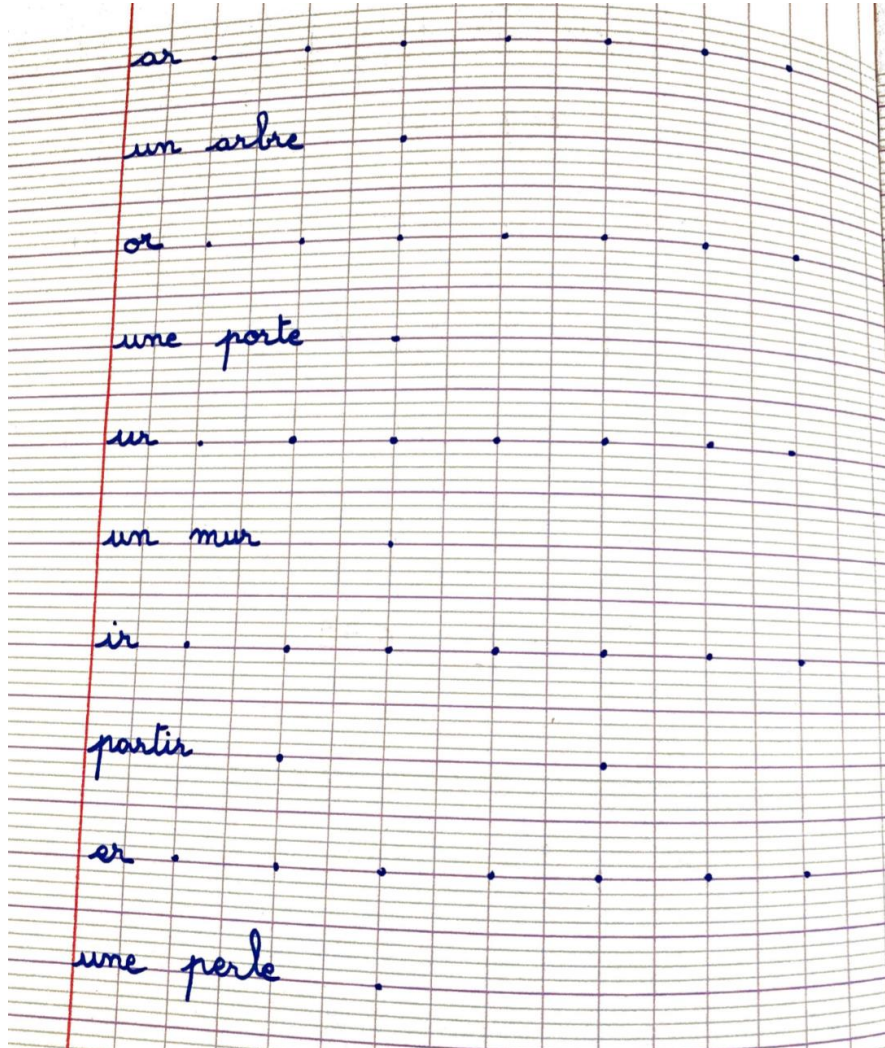 ar . . . . . . .
un arbre .
or . . . . . . .
une porte .
ur . . . . . . .
un mur .
ir . . . . . . .
partir . .
er . . . . . . .
une perle .